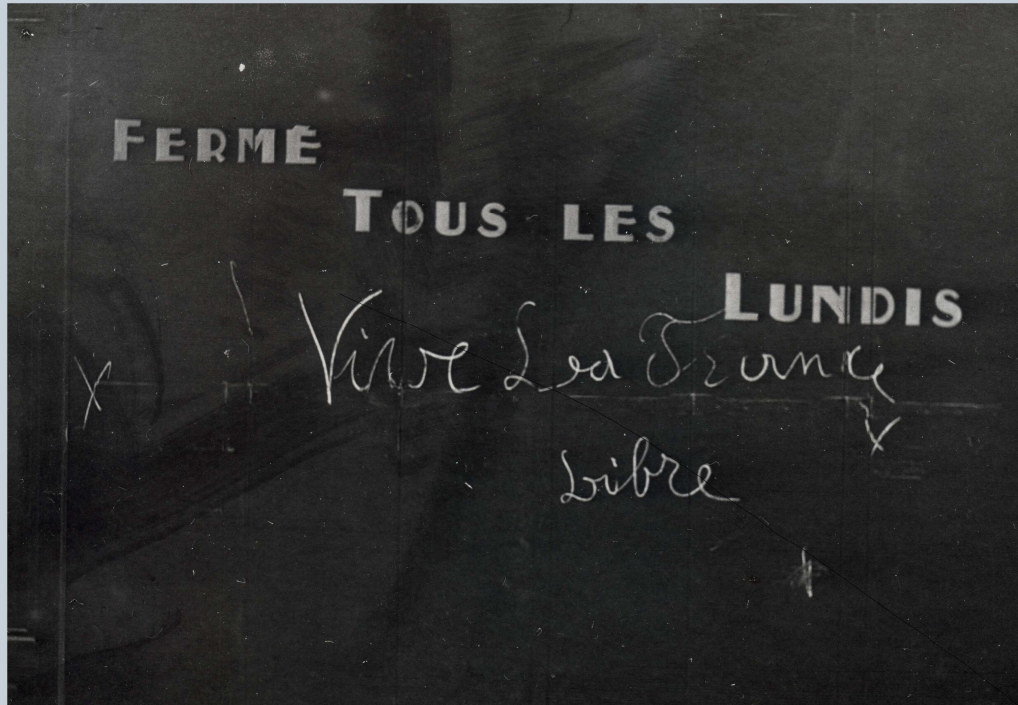 FERMÉ
TOUS LES
LUNDIS
Vive La France
Libre